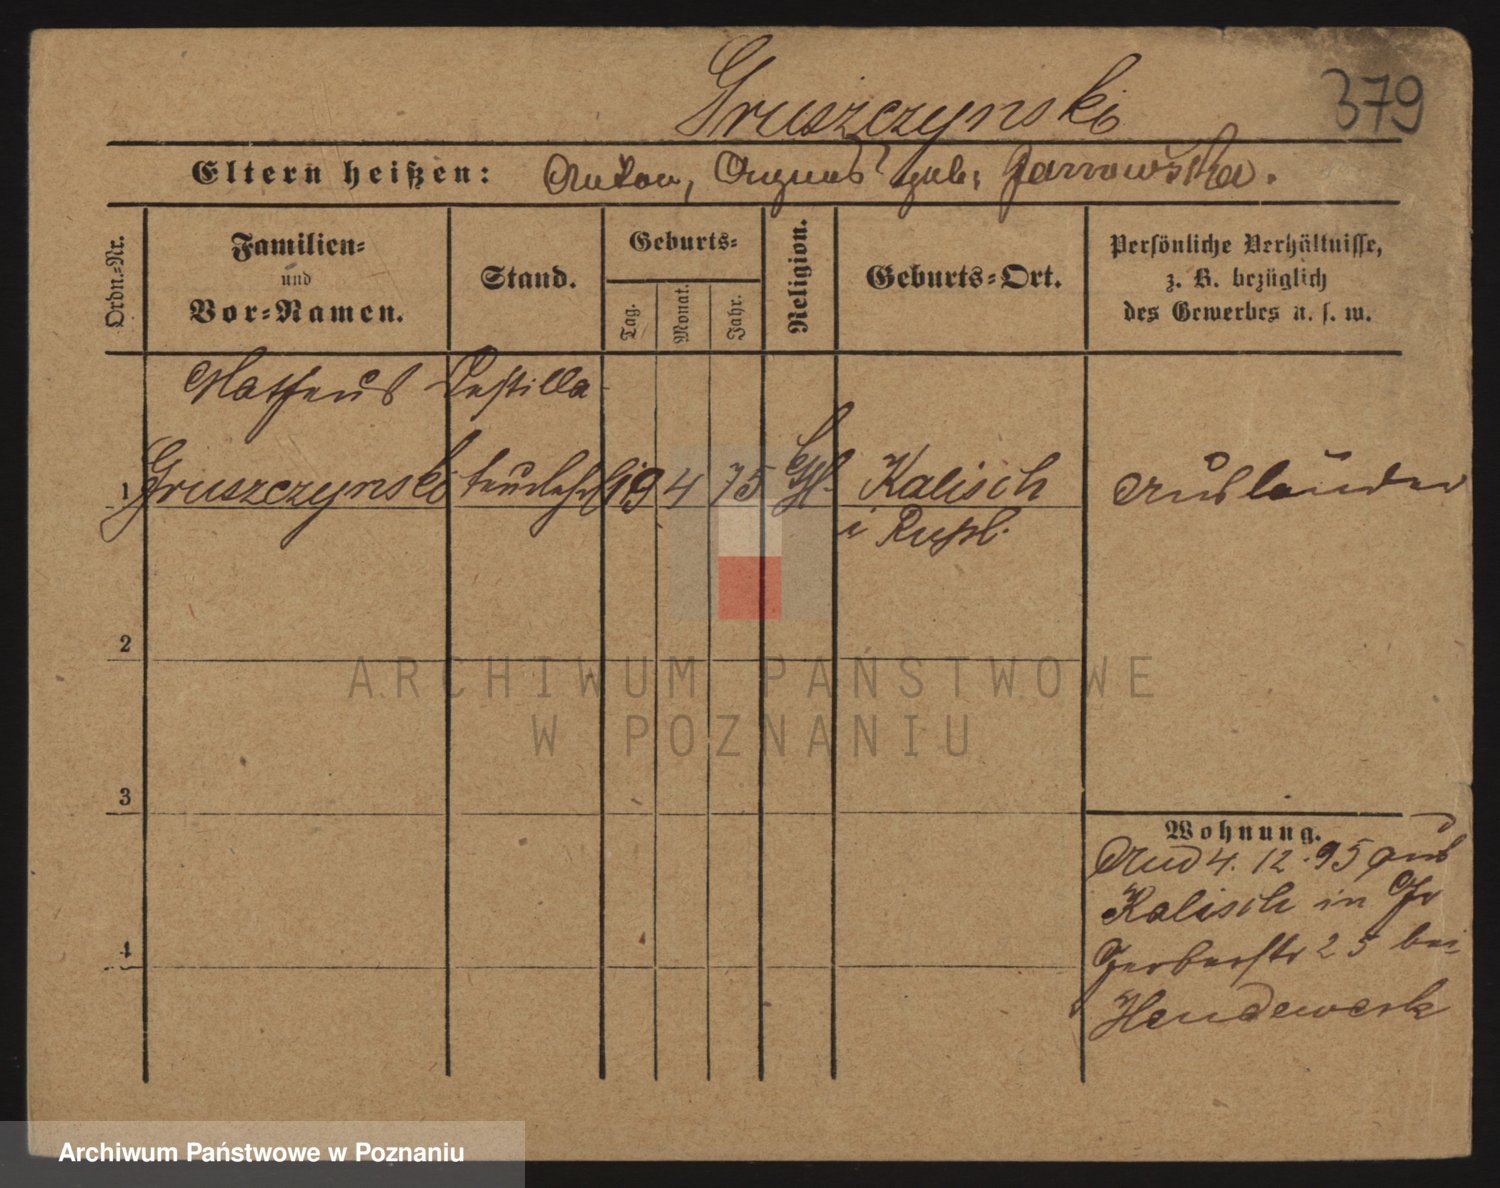 Gruszczynski
379
Eltern heißen: Anton, geb. Jarrowska.
Ordn.-Nr.
Familien-
und
Vor-Namen.
Stand.
Geburts-
Tag.
Monat.
Jahr.
Religion.
Geburts-Ort.
Persönliche Verhältnisse,
z. B. bezüglich
des Gewerbes u. s. w.
Matheus Destilla-
1 Gruszczynski teurlehrl 19 4 75 Kalisch Ausländer
i Russl.
2
3
4
Wohnung.
4. 12. 95 aus
Kalisch in
Gerberstr 25 bei
Hendewerk
ARCHIWUM PAŃSTWOWE
W POZNANIU
Archiwum Państwowe w Poznaniu